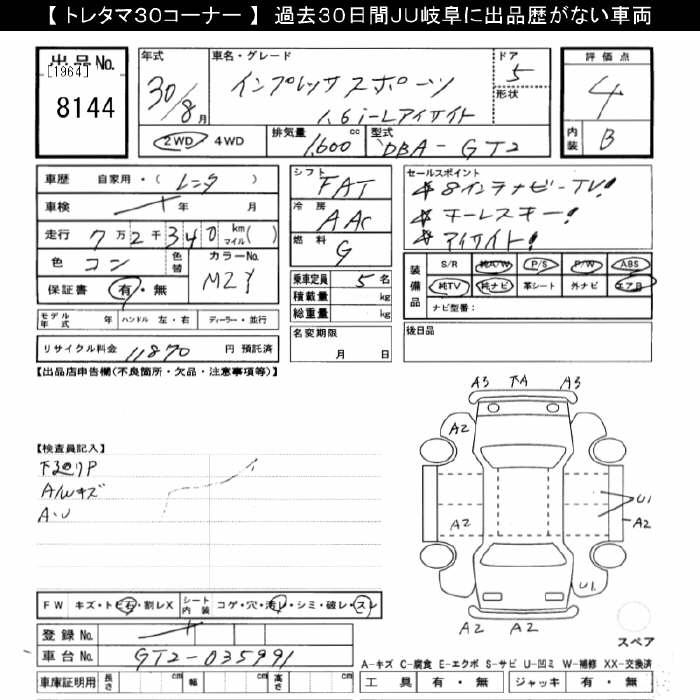 【 トレタマ３０コーナー 】 過去３０日間ＪＵ岐阜に出品歴がない車両
出品 No.
[1964]
8144
年式
30/8 月
車名・グレード
インプレッサスポーツ
1.6i-Lアイサイト
ドア
5
形状
2WD ・ 4WD
排気量 1,600 cc
型式 DBA-GT2
評価点
4
内装 B
車歴 自家用・( レンタ )
車検 年 月
走行 7万2千340 km マイル( )
色 コン 色替
カラーNo. MZY
保証書 有・無
モデル年式 年 ハンドル 左・右 ディーラー・並行
リサイクル料金 11870 円 預託済
シフト FAT
冷房 AAC
燃料 G
乗車定員 5 名
積載量 kg
総重量 kg
名変期限
月 日
セールスポイント
8インチナビ-TV!
キーレスキー!
アイサイト!
装備品
S/R 純A/W P/S P/W ABS
純TV 純ナビ 革シート 外ナビ エアB
ナビ型番:
後日品
【出品店申告欄(不良箇所・欠品・注意事項等)】
【検査員記入】
A/Wキズ
A・U
A3 A3
A2 A2
A2 U1
A2
U1
A2 A2
スペア
FW キズ・トビ石・割レX
シート内装 コゲ・穴・汚レ・シミ・破レ・スレ
登録 No.
車台 No. GT2-035991
車庫証明用 長さ cm 幅 cm 高さ cm
A-キズ C-腐食 E-エクボ S-サビ U-凹ミ W-補修 XX-交換済
工具 有・無 ジャッキ 有・無